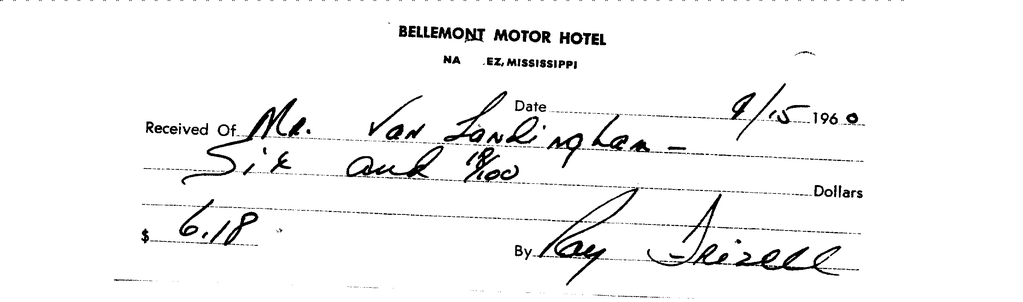 BELLEMONT MOTOR HOTEL
NA EZ, MISSISSIPPI
Date 9/15 1960
Received Of Mr. Van Landingham -
Six and 18/100 Dollars
$ 6.18 By Ray Frizell